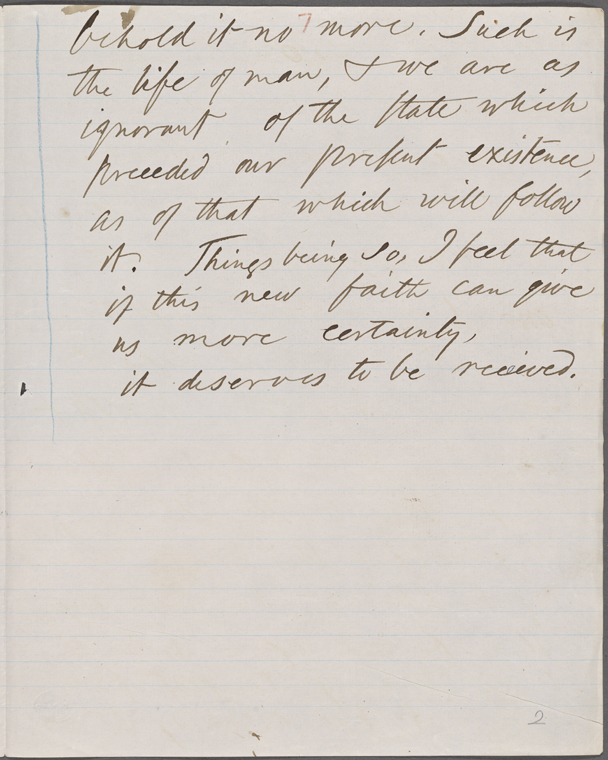 7
behold it no more. Such is
the life of man, & we are as
ignorant of the state which
preceeded our present existence,
as of that which will follow
it. Things being so, I feel that
if this new faith can give
us more certainty,
it deserves to be received.
2